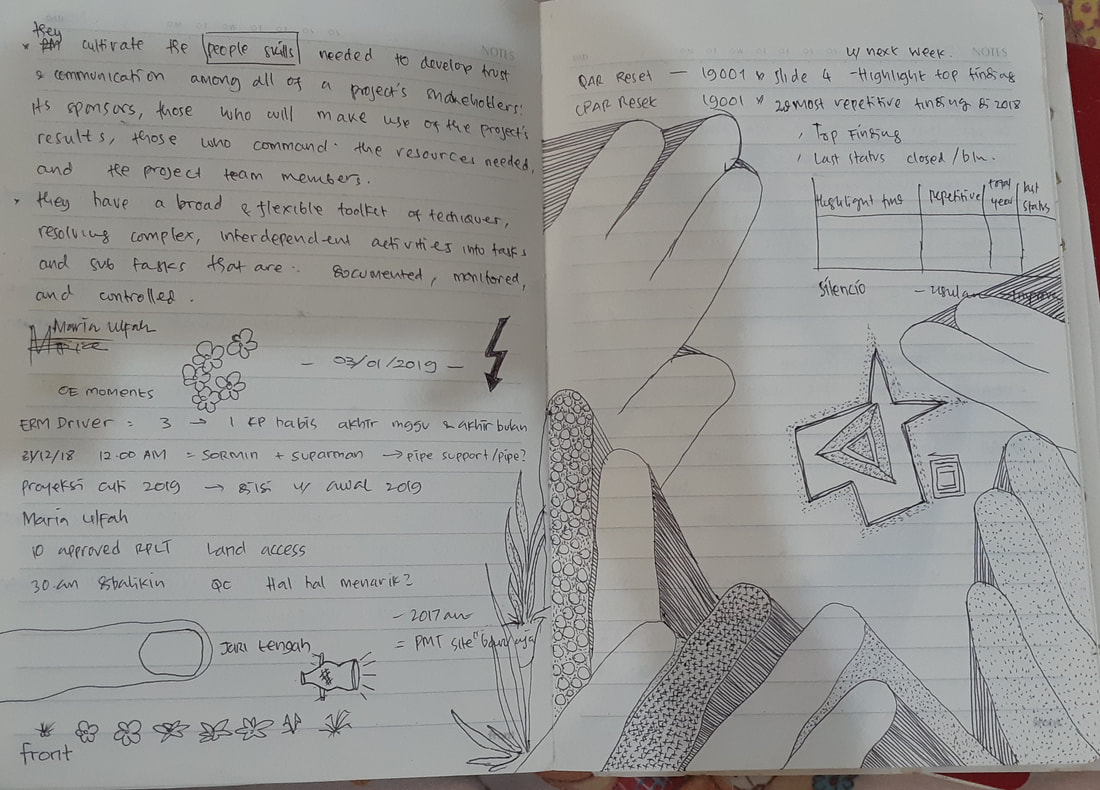 they
* PM cultivate the people skills needed to develop trust
& communication among all of a project's stakeholders:
its sponsors, those who will make use of the project's
results, those who command the resources needed,
and the project team members.
* they have a broad & flexible toolkit of techiques,
resolving complex, interdependent activities into tasks
and sub tasks that are documented, monitored,
and controlled.
Maria Ulfah
- 03/01/2019 -
OE moments
ERM Driver = 3 → 1 KP habis akhir mggu & akhir bulan
31/12/18 12.00 AM = SORMIN + suparman → pipe support/pipe?
proyeksi cuti 2019 → diisi u/ awal 2019
Maria Ulfah
10 approved RPLT Land access
30.an dibalikin QC Hal hal menarik?
- 2017 an
= PMT site
Jari tengah
front
NOTES
NOTES
w/ next week.
QAR Reset - 19001 * slide 4 - Highlight top finding
CPAR Reset 19001 * 20 most repetitive finding di 2018
, Top Finding
, Last status closed/blm.
Highlight repetitive total year last status
Silencio - usulan